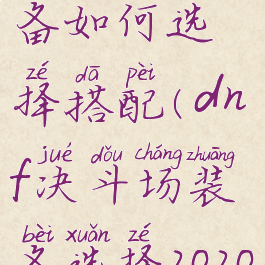 备如何选
zé dā pèi
择搭配(dn
jué dǒu cháng zhuāng
f决斗场装
bèi xuǎn zé
备选择2020